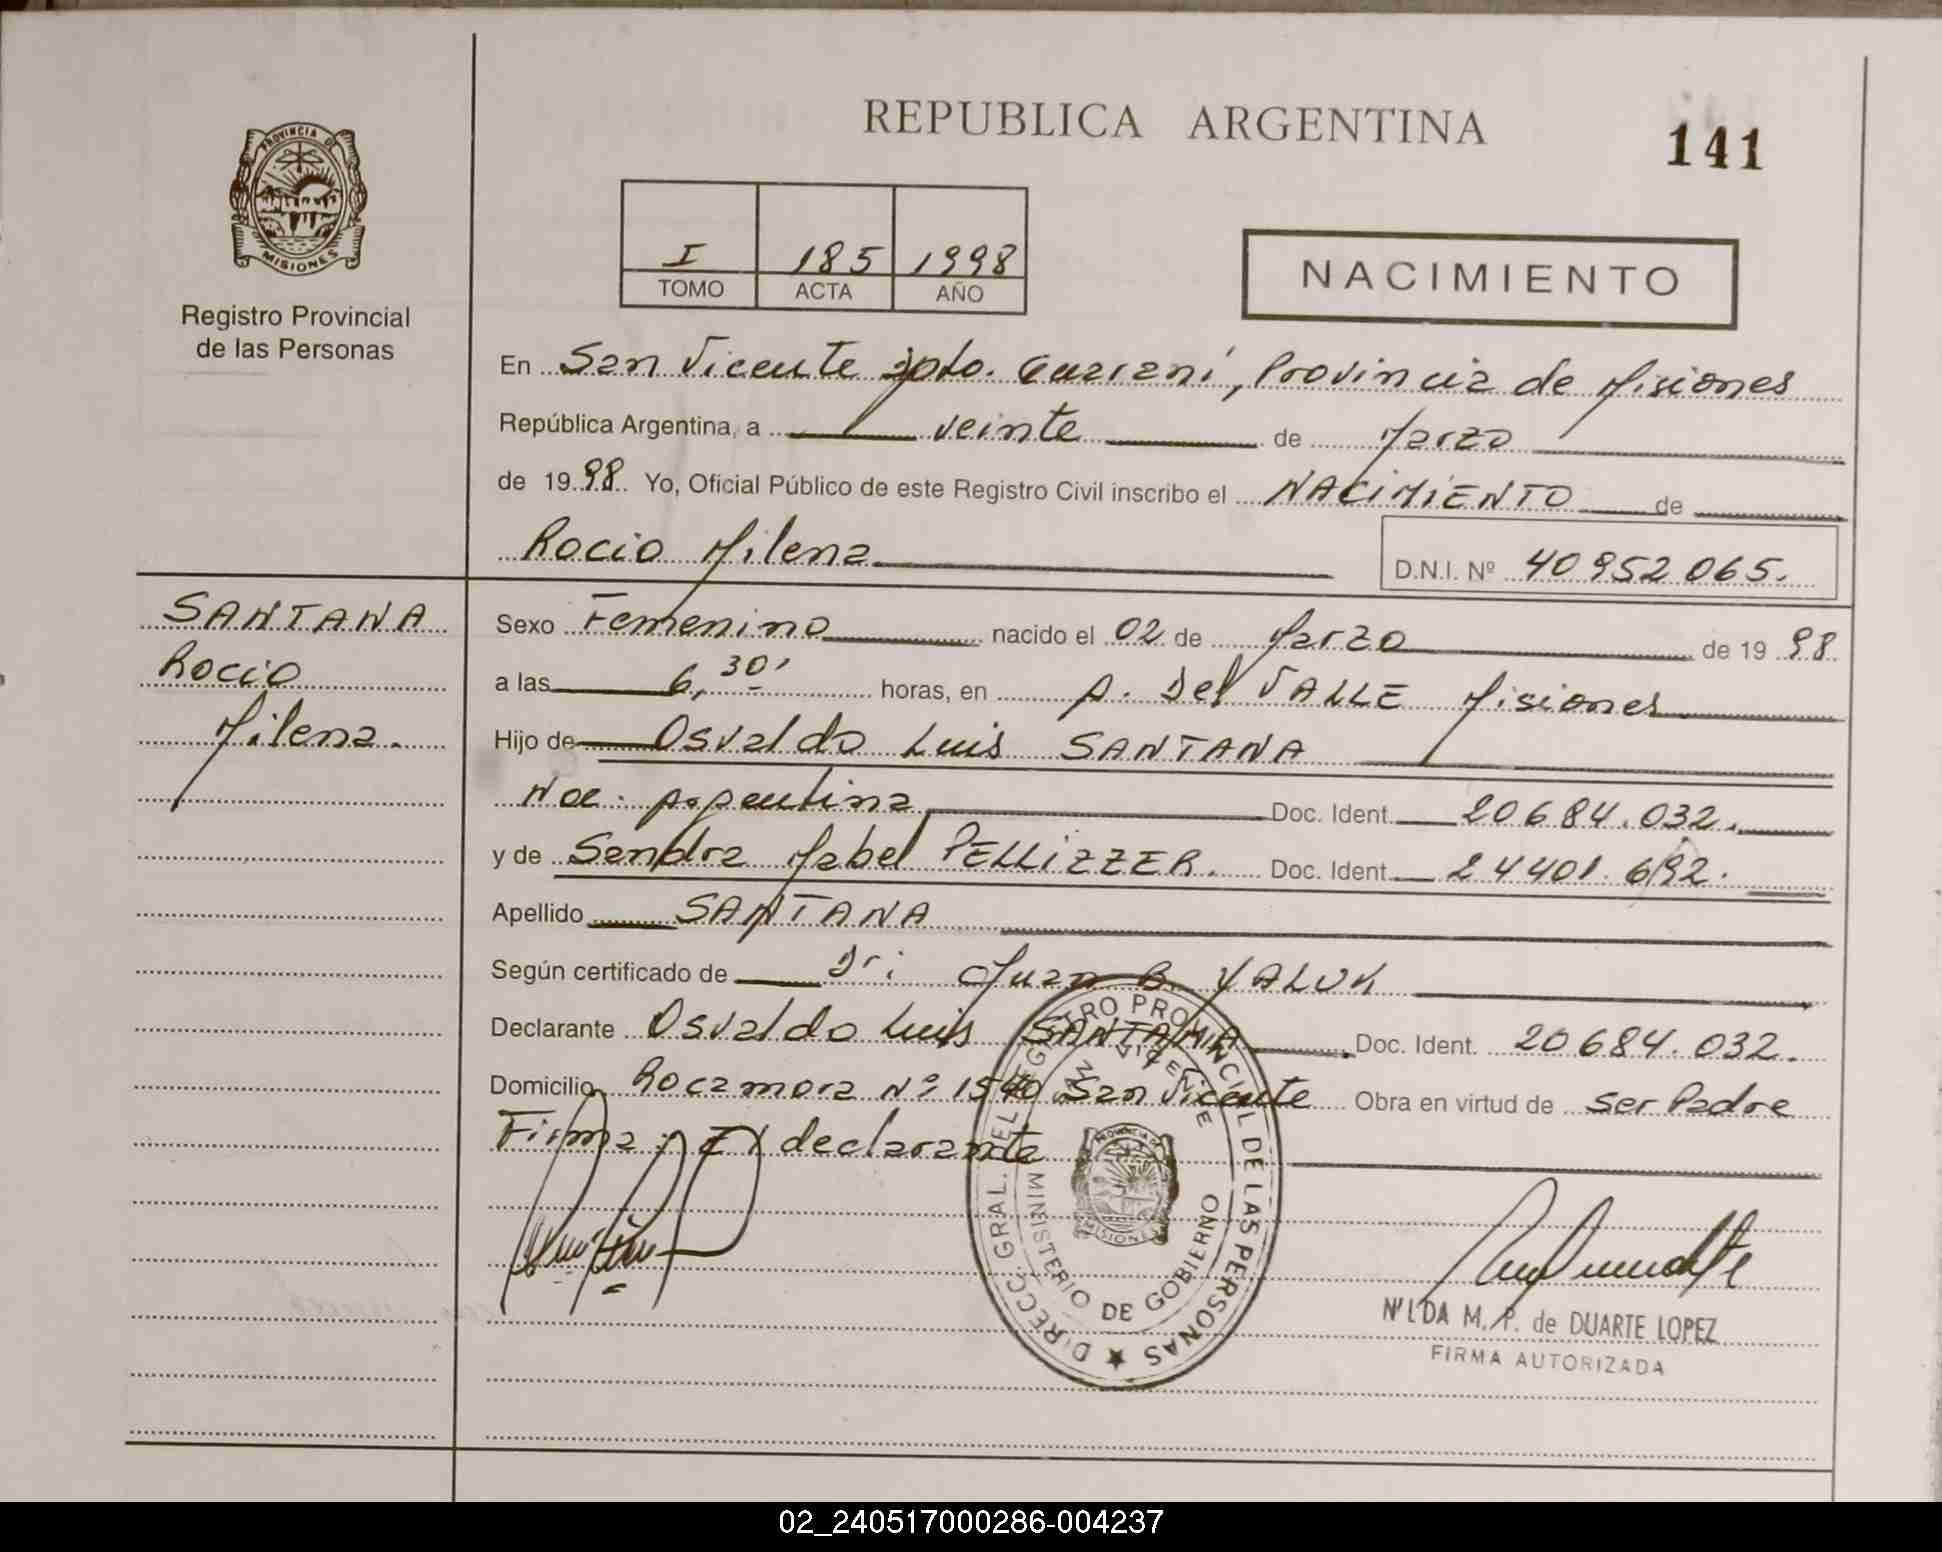 REPUBLICA ARGENTINA
141
PROVINCIA DE
MISIONES
Registro Provincial
de las Personas
I 185 1998
TOMO ACTA AÑO
NACIMIENTO
En San Vicente Dpto. Guarani, Provincia de Misiones
República Argentina, a veinte de Marzo
de 1998 Yo, Oficial Público de este Registro Civil inscribo el NACIMIENTO de
Rocio Milena
D.N.I. Nº 40952065.
SANTANA
Rocio
Milena.
Sexo Femenino nacido el 02 de Marzo de 1998
a las 6,30' horas, en A. Del VALLE Misiones
Hijo de Osvaldo Luis SANTANA
Nac. Argentina Doc. Ident. 20684.032.
y de Sandra Mabel PELLIZZER. Doc. Ident. 24401.692.
Apellido SANTANA
Según certificado de Dr: Juan B. YALUK
Declarante Osvaldo Luis SANTANA Doc. Ident. 20684.032.
Domicilio Rocamora Nº 1540 San Vicente Obra en virtud de ser Padre
Firma: El declarante
DIRECC. GRAL. DEL REGISTRO PROVINCIAL DE LAS PERSONAS
SAN VICENTE
MINISTERIO DE GOBIERNO
PROVINCIA DE
MISIONES
NILDA M. R. de DUARTE LOPEZ
FIRMA AUTORIZADA
02_240517000286-004237